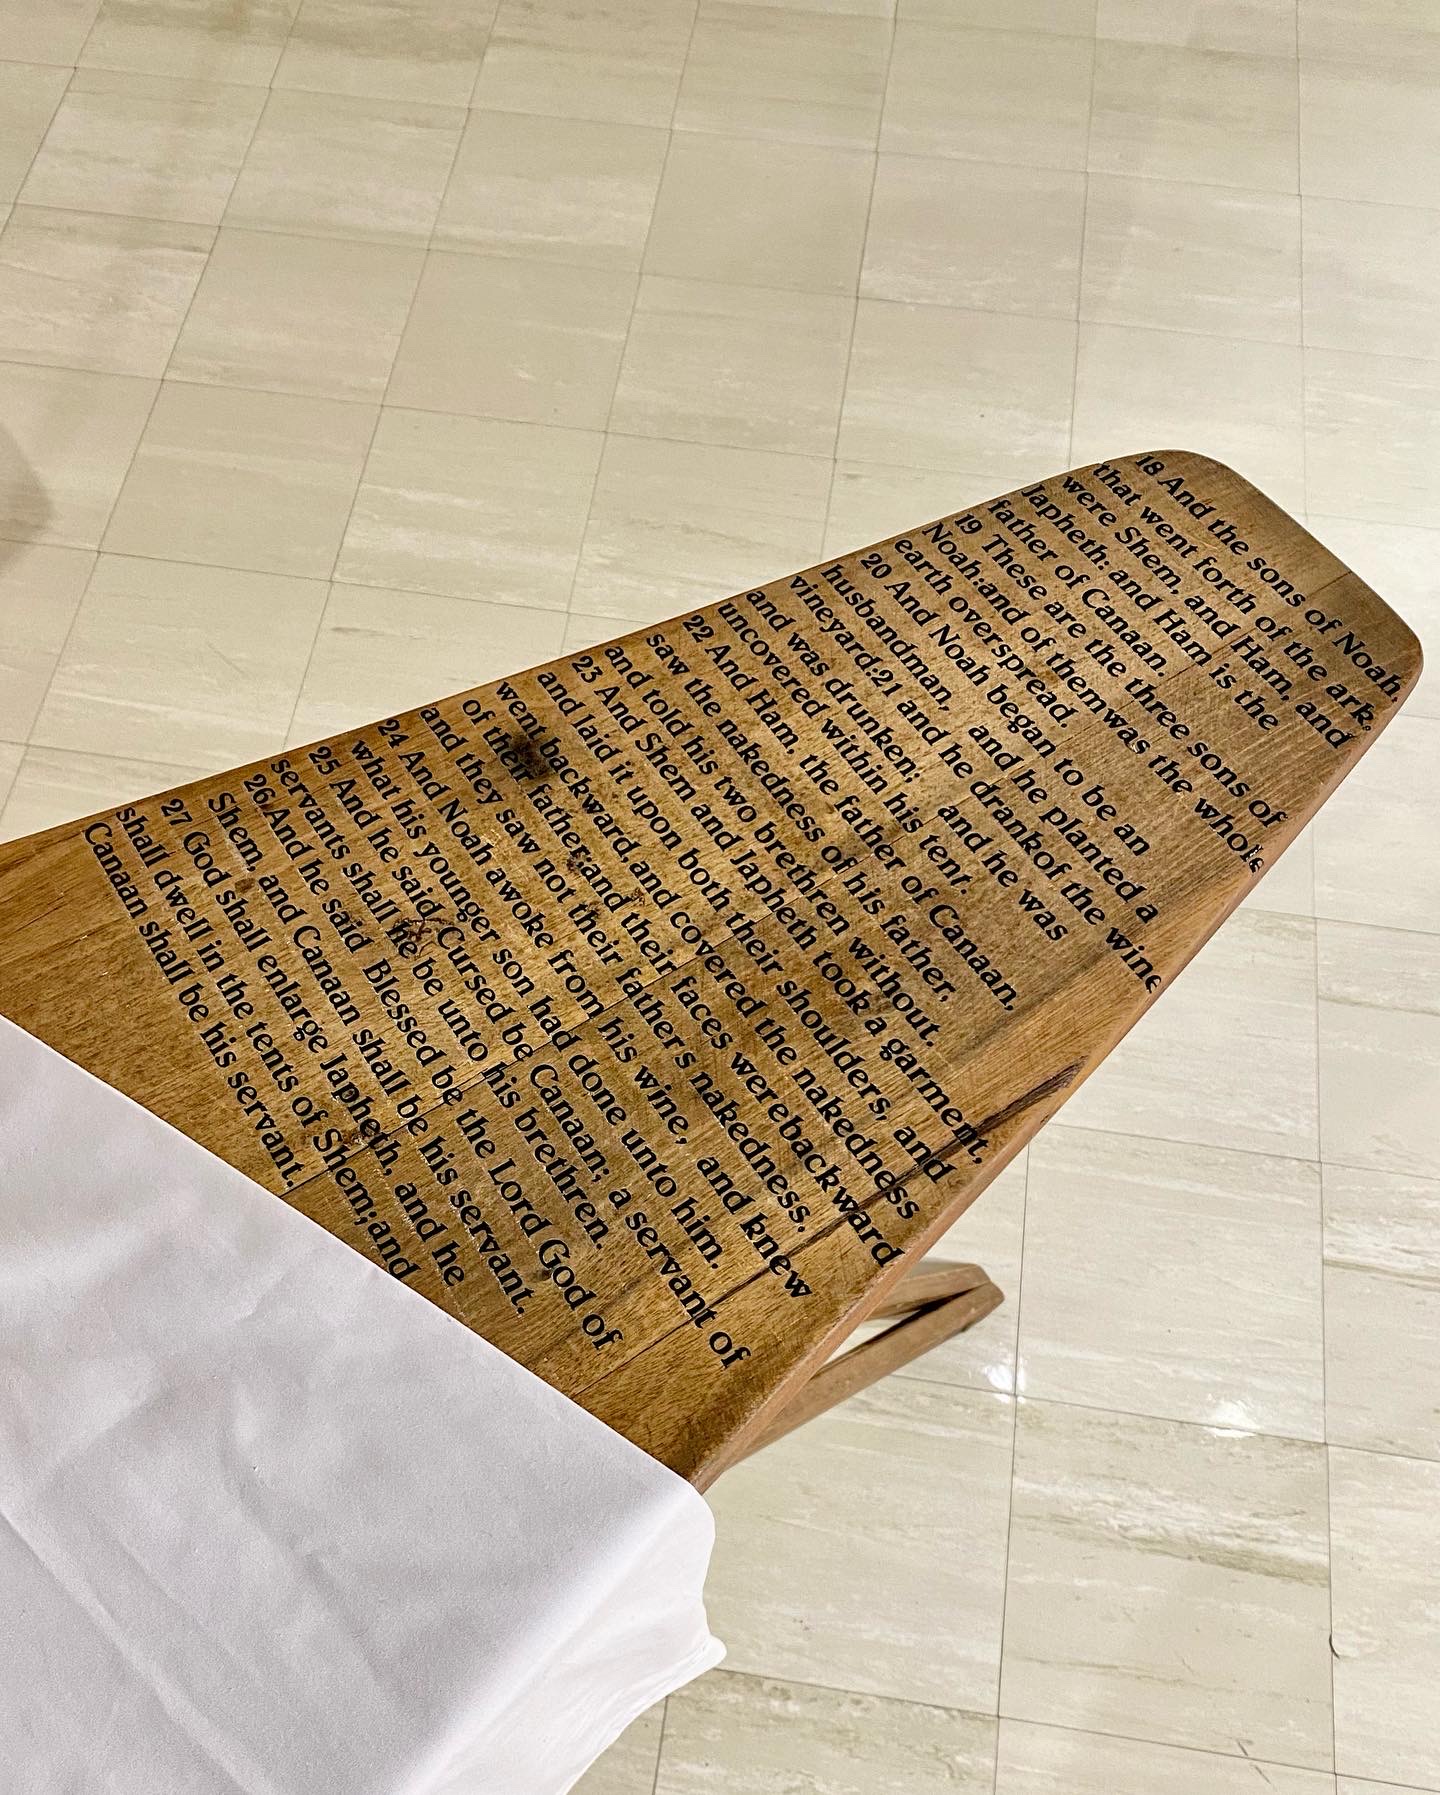 18 And the sons of Noah,
that went forth of the ark,
were Shem, and Ham, and
Japheth: and Ham is the
father of Canaan.
19 These are the three sons of
Noah:and of themwas the whole
earth overspread
20 And Noah began to be an
husbandman, and he planted a
vineyard:21 and he drankof the wine
and was drunken; and he was
uncovered within his tent.
22 And Ham, the father of Canaan,
saw the nakedness of his father,
and told his two brethren without.
23 And Shem and Japheth took a garment,
and laid it upon both their shoulders, and
went backward,and covered the nakedness
of their father;and their faces werebackward
and they saw not their father's nakedness.
24 And Noah awoke from his wine, and knew
what his younger son had done unto him.
25 And he said, Cursed be Canaan; a servant of
servants shall he be unto his brethren.
26 And he said Blessed be the Lord God of
Shem, and Canaan shall be his servant.
27 God shall enlarge Japheth, and he
shall dwell in the tents of Shem;and
Canaan shall be his servant.